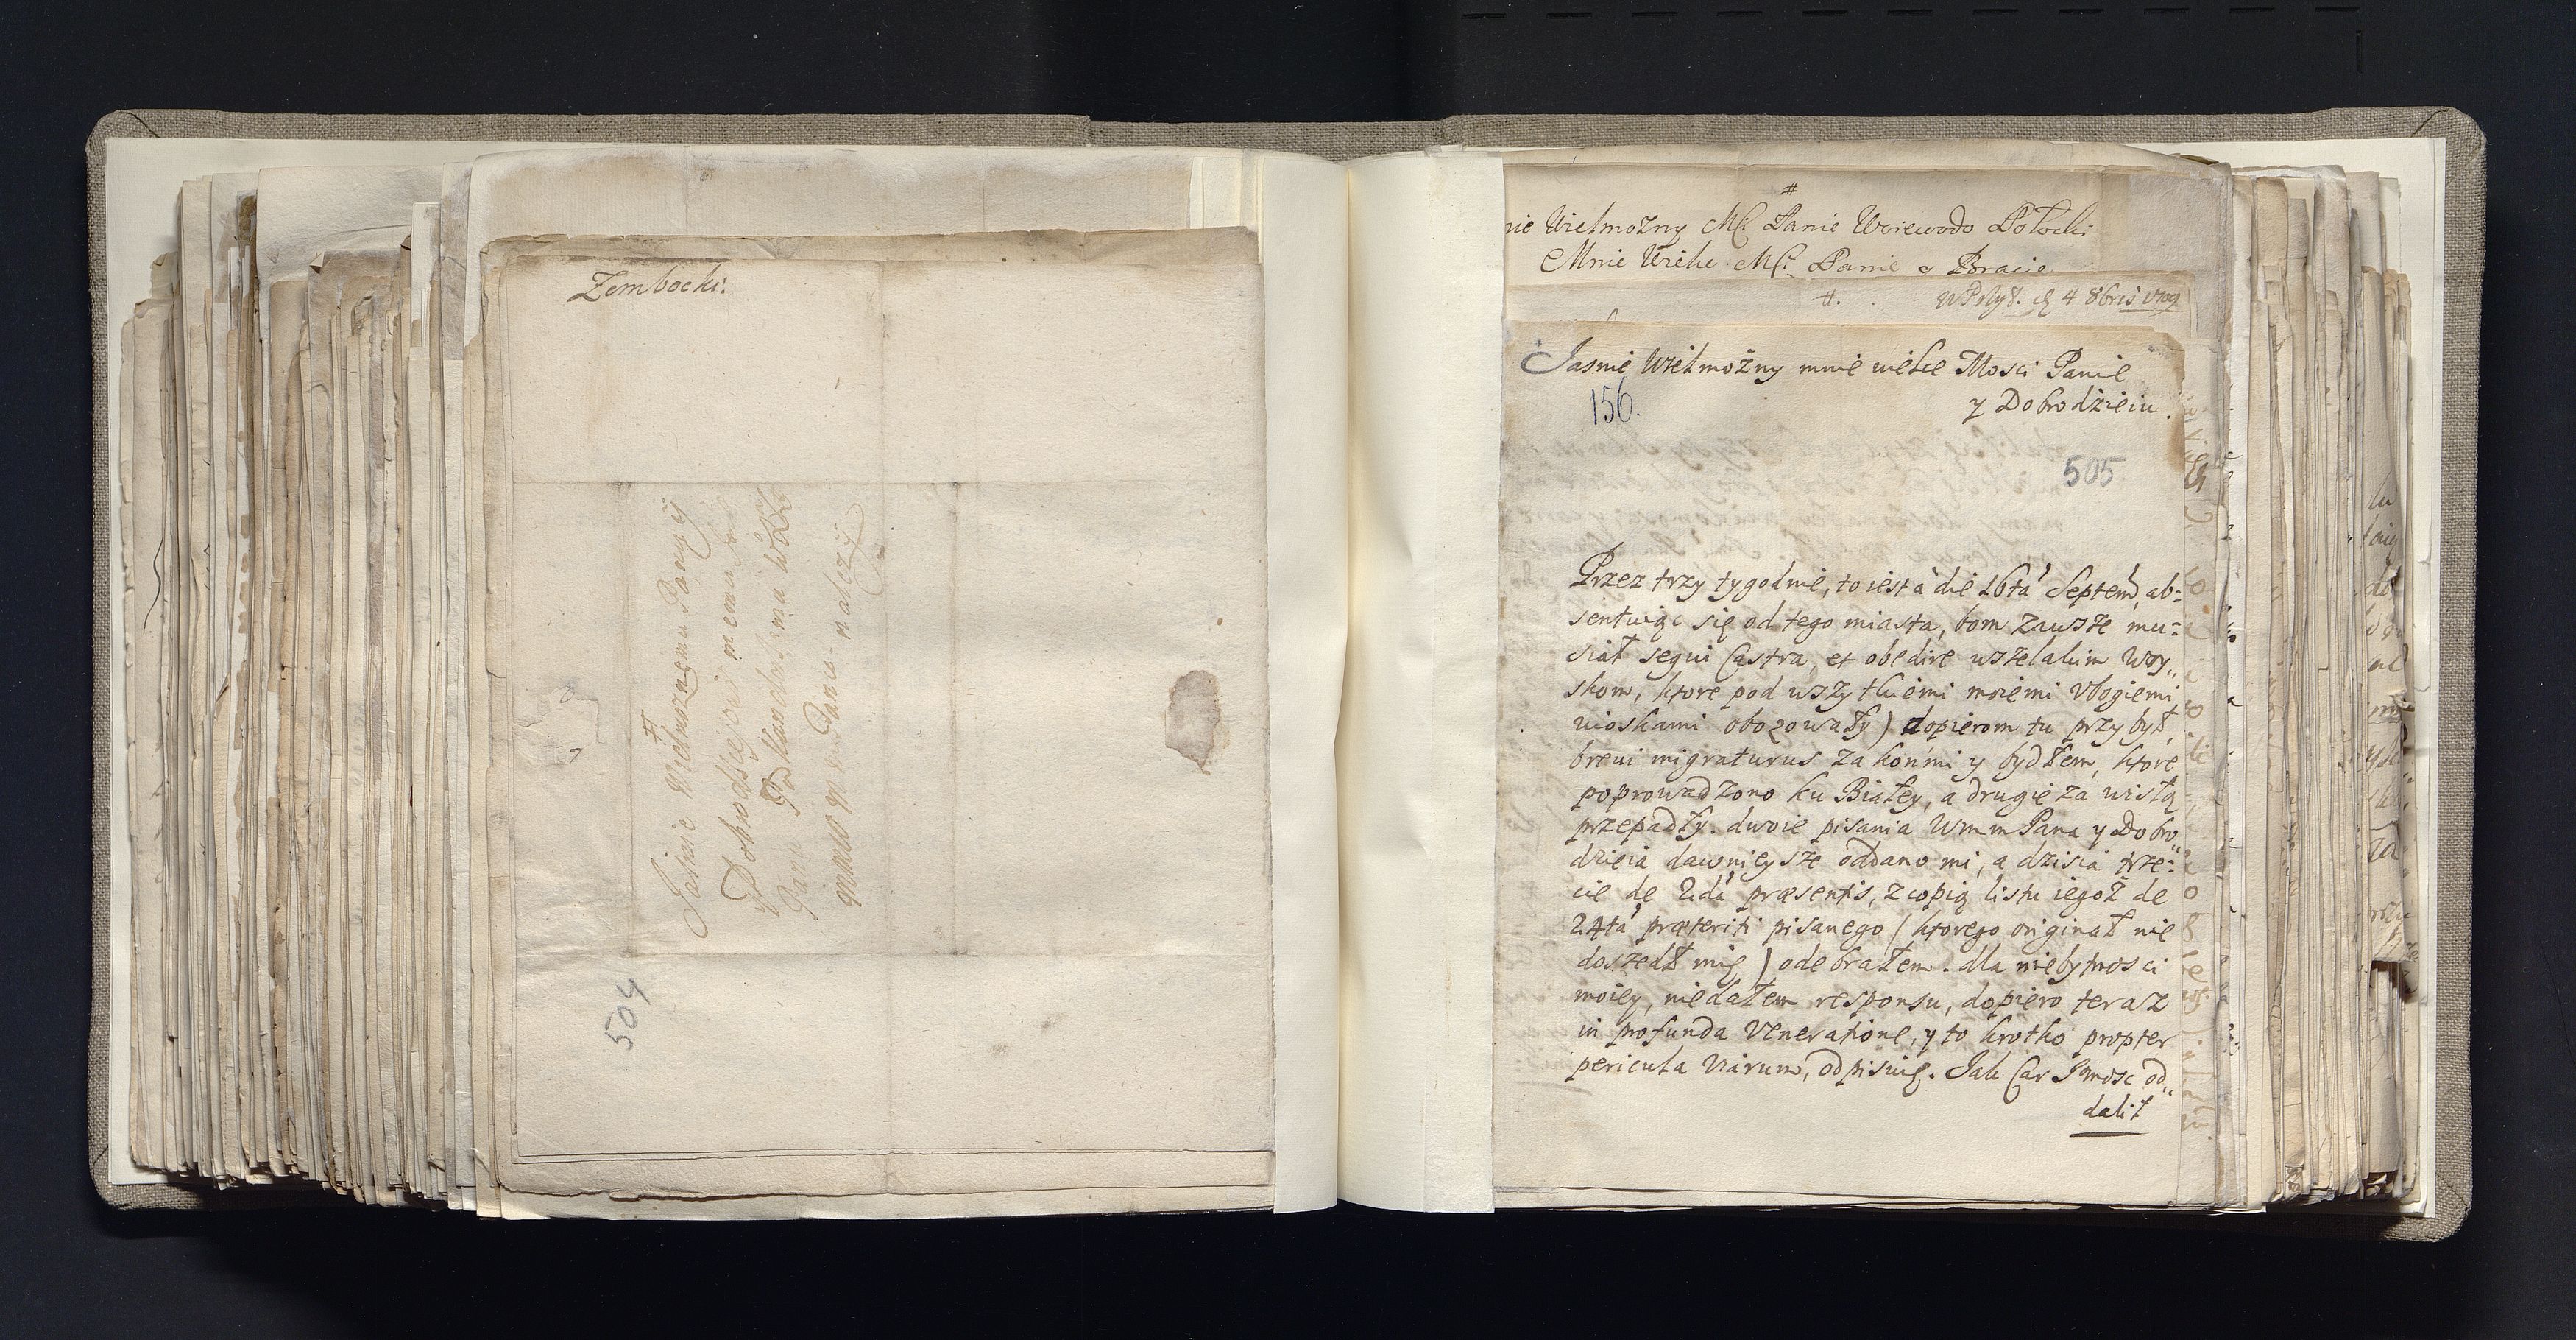 Zembocki:
Jasnie Wielmoznemu Panu y
Dobrodzieiowi memu
Panu
mnie Panu należy
504
nie Wielmożny Mśi Panie Woiewodo Połocki
Mnie Wielce Mśi Panie y Bracie
4 8bris 1709
Jasnie Wielmożny mnie wielce Mosci Panie
y Dobrodzieiu.
156.
505
Przez trzy tygodnie, to iest à die 16tá Septem, ab=
sentuiąc się od tego miasta, bom zawsze mu=
siał sequi Castra, et obedire wszelakim Woy„
skom, ktore pod wszytkiemi moiemi Vbogiemi
wioskami obozowały) dopierom tu przybył,
breui migraturus za końmi y bydłem, ktore
poprowadzono ku Białey, a drugie za wisłą
przepadły. dwoie pisania Wmm Pana y Dobro„
dzieia dawnieysze oddano mi, a dzisia trze=
cie de 2dá præsentis, z copią listu iegoż de
24tá præteriti pisanego (ktorego originał nie
doszedł mię) odebrałem. dla niebytnosci
moiey, niedałem responsu, dopiero teraz
in profunda Veneratione, y to krotko propter
pericula viarum, odpisuię. Jak Car Jmosc od„
dalił